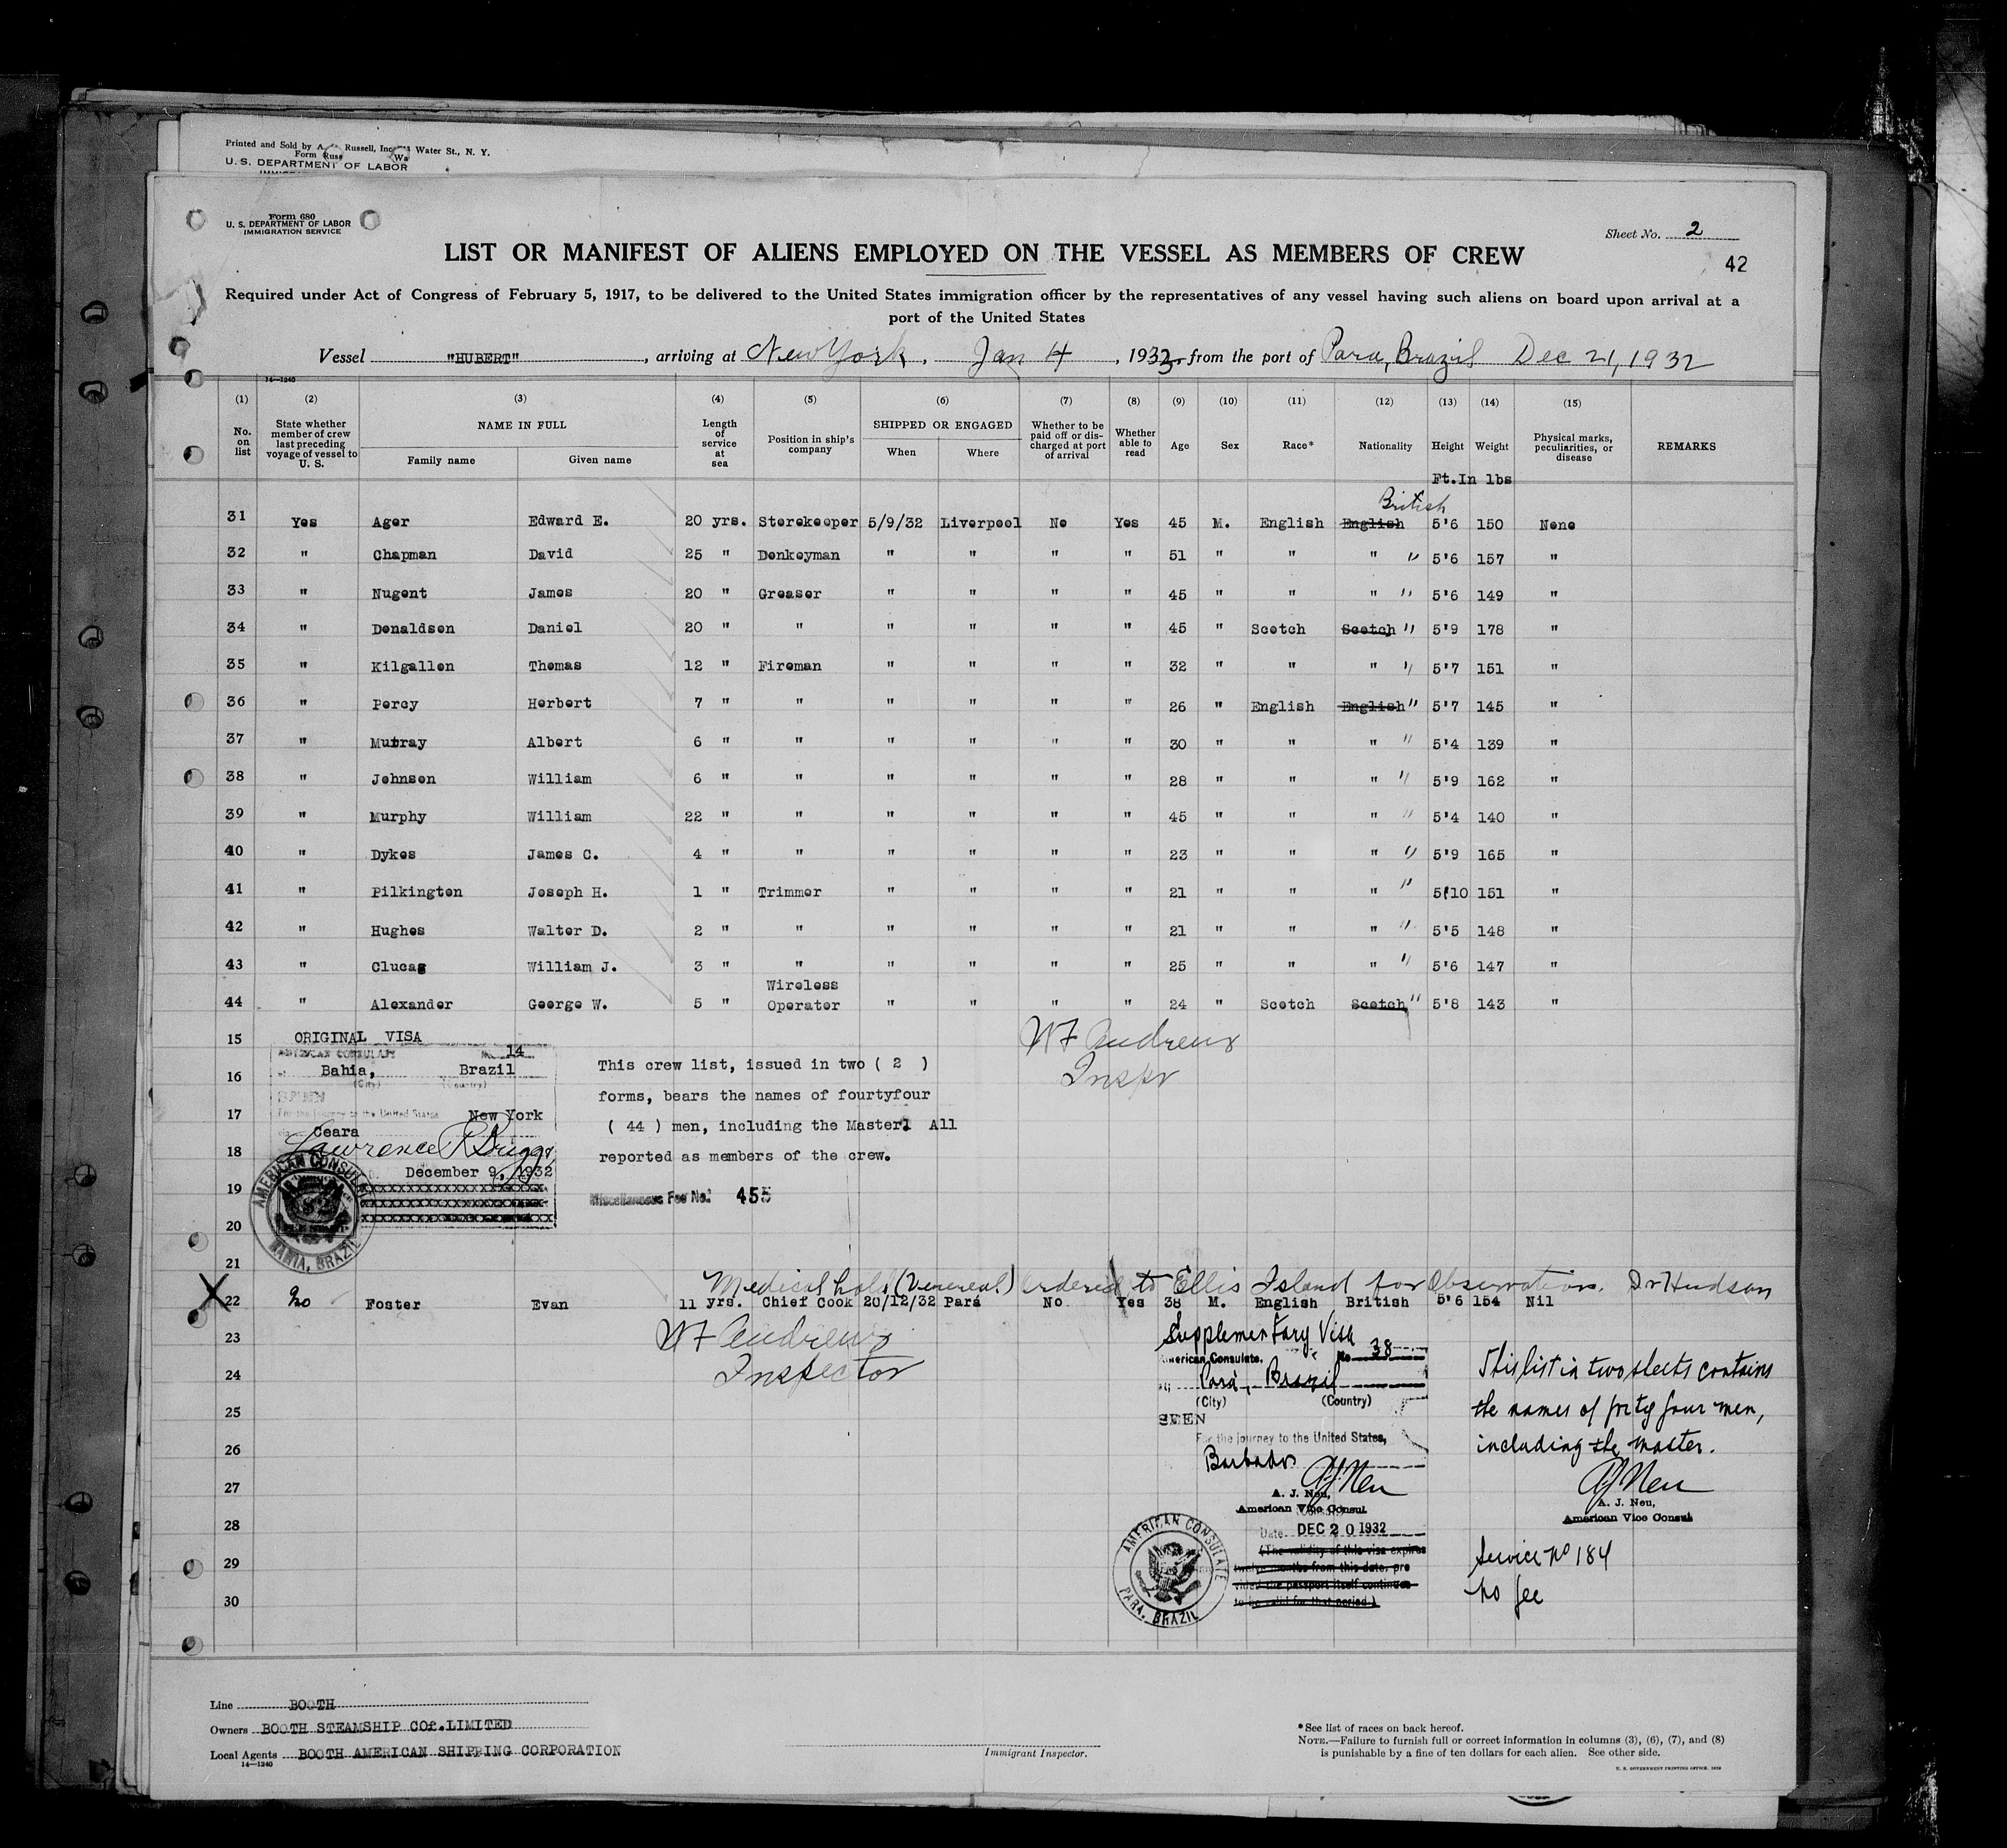 Printed and Sold by A. Russell, Inc. Water St., N. Y.
Form Russ Wa
U. S. DEPARTMENT OF LABOR
Form 680
U. S. DEPARTMENT OF LABOR
IMMIGRATION SERVICE
Sheet No. 2
LIST OR MANIFEST OF ALIENS EMPLOYED ON THE VESSEL AS MEMBERS OF CREW
42
Required under Act of Congress of February 5, 1917, to be delivered to the United States immigration officer by the representatives of any vessel having such aliens on board upon arrival at a
port of the United States
Vessel "HUBERT", arriving at New York, Jan 4, 1933, from the port of Para, Brazil Dec 21, 1932
14—1240
(1) (2) (3) (4) (5) (6) (7) (8) (9) (10) (11) (12) (13) (14) (15)
No. on list
State whether member of crew last preceding voyage of vessel to U. S.
NAME IN FULL
Family name
Given name
Length of service at sea
Position in ship's company
SHIPPED OR ENGAGED
When
Where
Whether to be paid off or discharged at port of arrival
Whether able to read
Age
Sex
Race*
Nationality
Height
Weight
Physical marks, peculiarities, or disease
REMARKS
Ft.In lbs
British
31 Yes Ager Edward E. 20 yrs. Storekeeper 5/9/32 Liverpool No Yes 45 M. English English 5'6 150 None
32 " Chapman David 25 " Donkeyman " " " " 51 " " " " 5'6 157 "
33 " Nugent James 20 " Greaser " " " " 45 " " " " 5'6 149 "
34 " Donaldson Daniel 20 " " " " " " 45 " Scotch Scotch " 5'9 178 "
35 " Kilgallon Thomas 12 " Fireman " " " " 32 " " " " 5'7 151 "
36 " Percy Herbert 7 " " " " " " 26 " English English " 5'7 145 "
37 " Murray Albert 6 " " " " " " 30 " " " " 5'4 139 "
38 " Johnson William 6 " " " " " " 28 " " " " 5'9 162 "
39 " Murphy William 22 " " " " " " 45 " " " " 5'4 140 "
40 " Dykes James C. 4 " " " " " " 23 " " " " 5'9 165 "
41 " Pilkington Joseph H. 1 " Trimmer " " " " 21 " " " " 5'10 151 "
42 " Hughes Walter D. 2 " " " " " " 21 " " " " 5'5 148 "
43 " Clucas William J. 3 " " " " " " 25 " " " " 5'6 147 "
44 " Alexander George W. 5 " Wireless Operator " " " " 24 " Scotch Scotch " 5'8 143 "
15
ORIGINAL VISA
W F Andrews
Inspr
AMERICAN CONSULATE No. 14
16
Bahia, Brazil
(City) (Country)
SEEN
17
For the journey to the United States New York
via Ceara
18
Lawrence P. Briggs
December 9, 1932
19
20
AMERICAN CONSULATE
BAHIA, BRAZIL
This crew list, issued in two ( 2 )
forms, bears the names of fourtyfour
( 44 ) men, including the Master. All
reported as members of the crew.
Miscellaneous Fee No. 455
21
Medical hold (Venereal) Ordered to Ellis Island for Observation. Dr Hudson
X 22 No Foster Evan 11 yrs. Chief Cook 20/12/32 Pará No Yes 38 M. English British 5'6 154 Nil
W F Andrews
Inspector
23
24
25
26
27
28
29
30
Supplementary Visa
American Consulate, No 38
at Pará, Brazil
(City) (Country)
SEEN
For the journey to the United States,
Barbados
A J Neu
A. J. Neu,
American Vice Consul
Date DEC 20 1932
(The validity of this visa expires
twelve months from this date, pro
vided the passport itself continues
to be valid for that period.)
AMERICAN CONSULATE
PARA, BRAZIL
This list in two sheets contains
the names of forty four men,
including the master.
A J Neu
A. J. Neu,
American Vice Consul
Service No 184
No fee
Line BOOTH
Owners BOOTH STEAMSHIP CO. LIMITED
Local Agents BOOTH AMERICAN SHIPPING CORPORATION
14—1240
Immigrant Inspector.
*See list of races on back hereof.
NOTE.—Failure to furnish full or correct information in columns (3), (6), (7), and (8)
is punishable by a fine of ten dollars for each alien. See other side.
U. S. GOVERNMENT PRINTING OFFICE: 1929